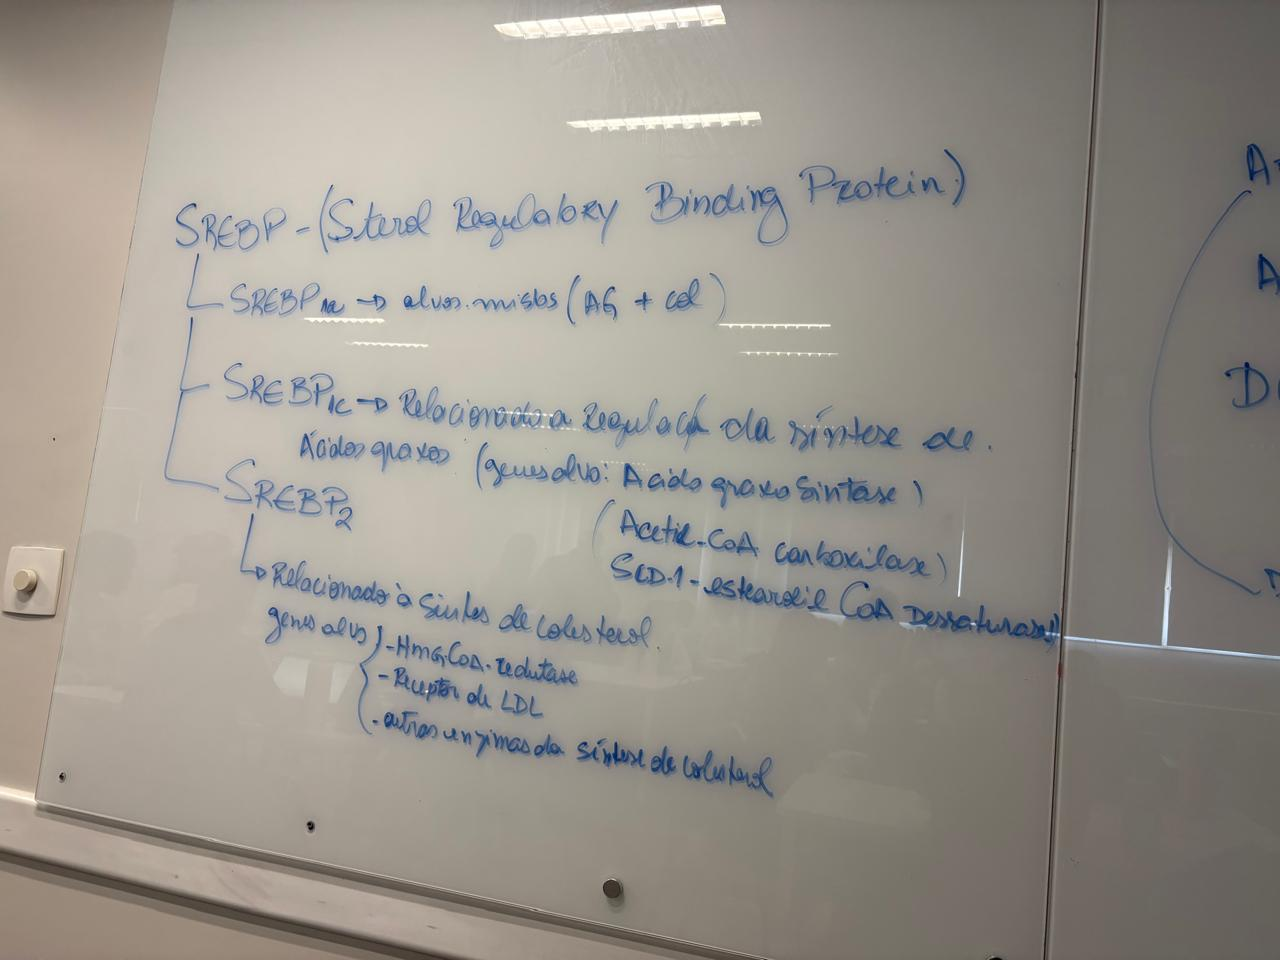 SREBP - (Sterol Regulatory Binding Protein)
SREBP1a → alvos mistos (AG + col)
SREBP1c → Relacionado a Regulaçã da síntese de.
Ácidos graxos (genes alvo: Acido graxo Sintase)
(Acetil-CoA carboxilase)
SCD-1 - estearoil CoA Dessaturase))
SREBP2
Relacionado à Sintes de colesterol.
genes alvos
- HmG.CoA. redutase
- Receptor de LDL
- outras enzimas da síntese de colesterol
A
A
D